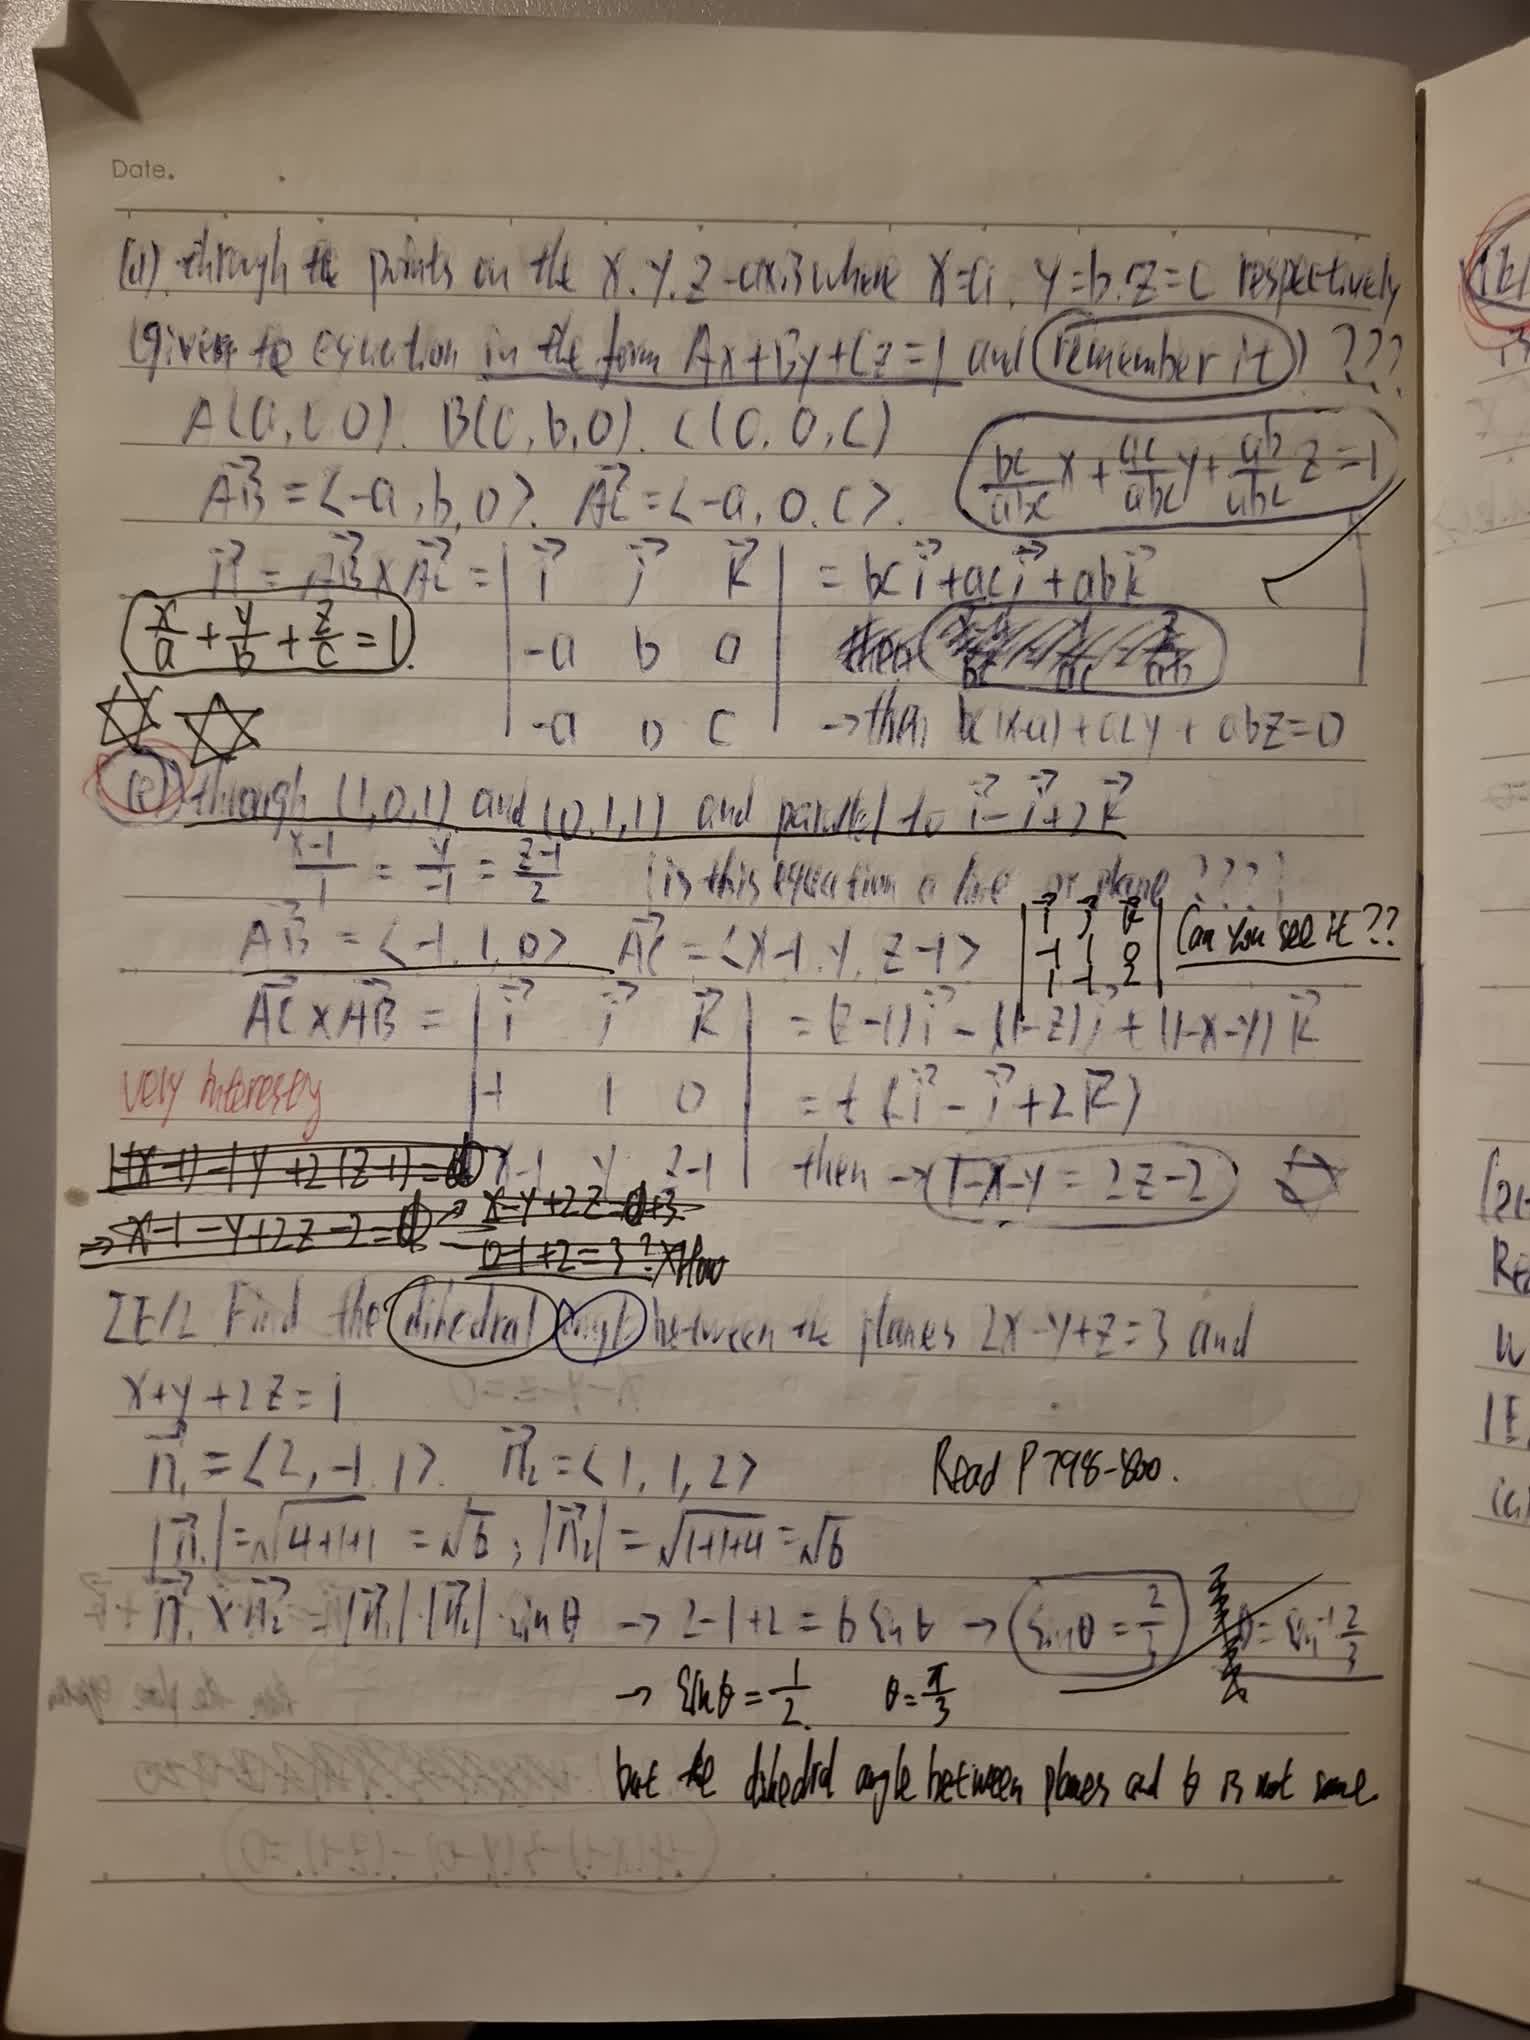 Date.
(d). through the points on the x. y. z-axis where x=a, y=b. z=c respectively
(given to equation in the form Ax+By+Cz=1 and (remember it)) ???
A(a, 0, 0). B(0, b, 0). C(0, 0, c)
AB→ = <-a, b, 0>. AC→ = <-a, 0, c>.
bc/abc x + ac/abc y + ab/abc z = 1
n→ = AB→ × AC→ = | i→ j→ k→ | = bc i→ + ac j→ + ab k→
x/a + y/b + z/c = 1.
-a b 0
then
-a 0 c → then bc(x-a) + acy + abz = 0
(e) through (1,0,1) and (0,1,1) and parallel to i→ - j→ + 2k→
x-1/1 = y/-1 = z-1/2 (is this equation a line or plane ???)
AB→ = <-1, 1, 0> AC→ = <x-1, y, z-1>
| i→ j→ k→ |
-1 1 0
1 -1 2
Can you see it??
AC→ × AB→ = | i→ j→ k→ | = (z-1)i→ - (1-z)j→ + (1-x-y)k→
very interesty
-1 1 0 = t(i→ - j→ + 2k→)
x-1 y z-1 then → 1-x-y = 2z-2
1(x-1)-1y+2(z-1)=d
⇒ x-1-y+2z-2=d → x-y+2z=d+3
0-1+2=3? × How
1E/2 Find the dihedral angle between the planes 2x-y+z=3 and
x+y+2z=1
n→₁ = <2, -1, 1>. n→₂ = <1, 1, 2>
Read P798-800.
|n→₁| = √4+1+1 = √6 ; |n→₂| = √1+1+4 = √6
n→₁ × n→₂ = |n→₁|·|n→₂|·sinθ → 2-1+2 = 6 sinθ → sinθ = 2/3 θ = sin⁻¹ 2/3
→ sinθ = 1/2. θ = π/3
but the dihedral angle between planes and θ is not same